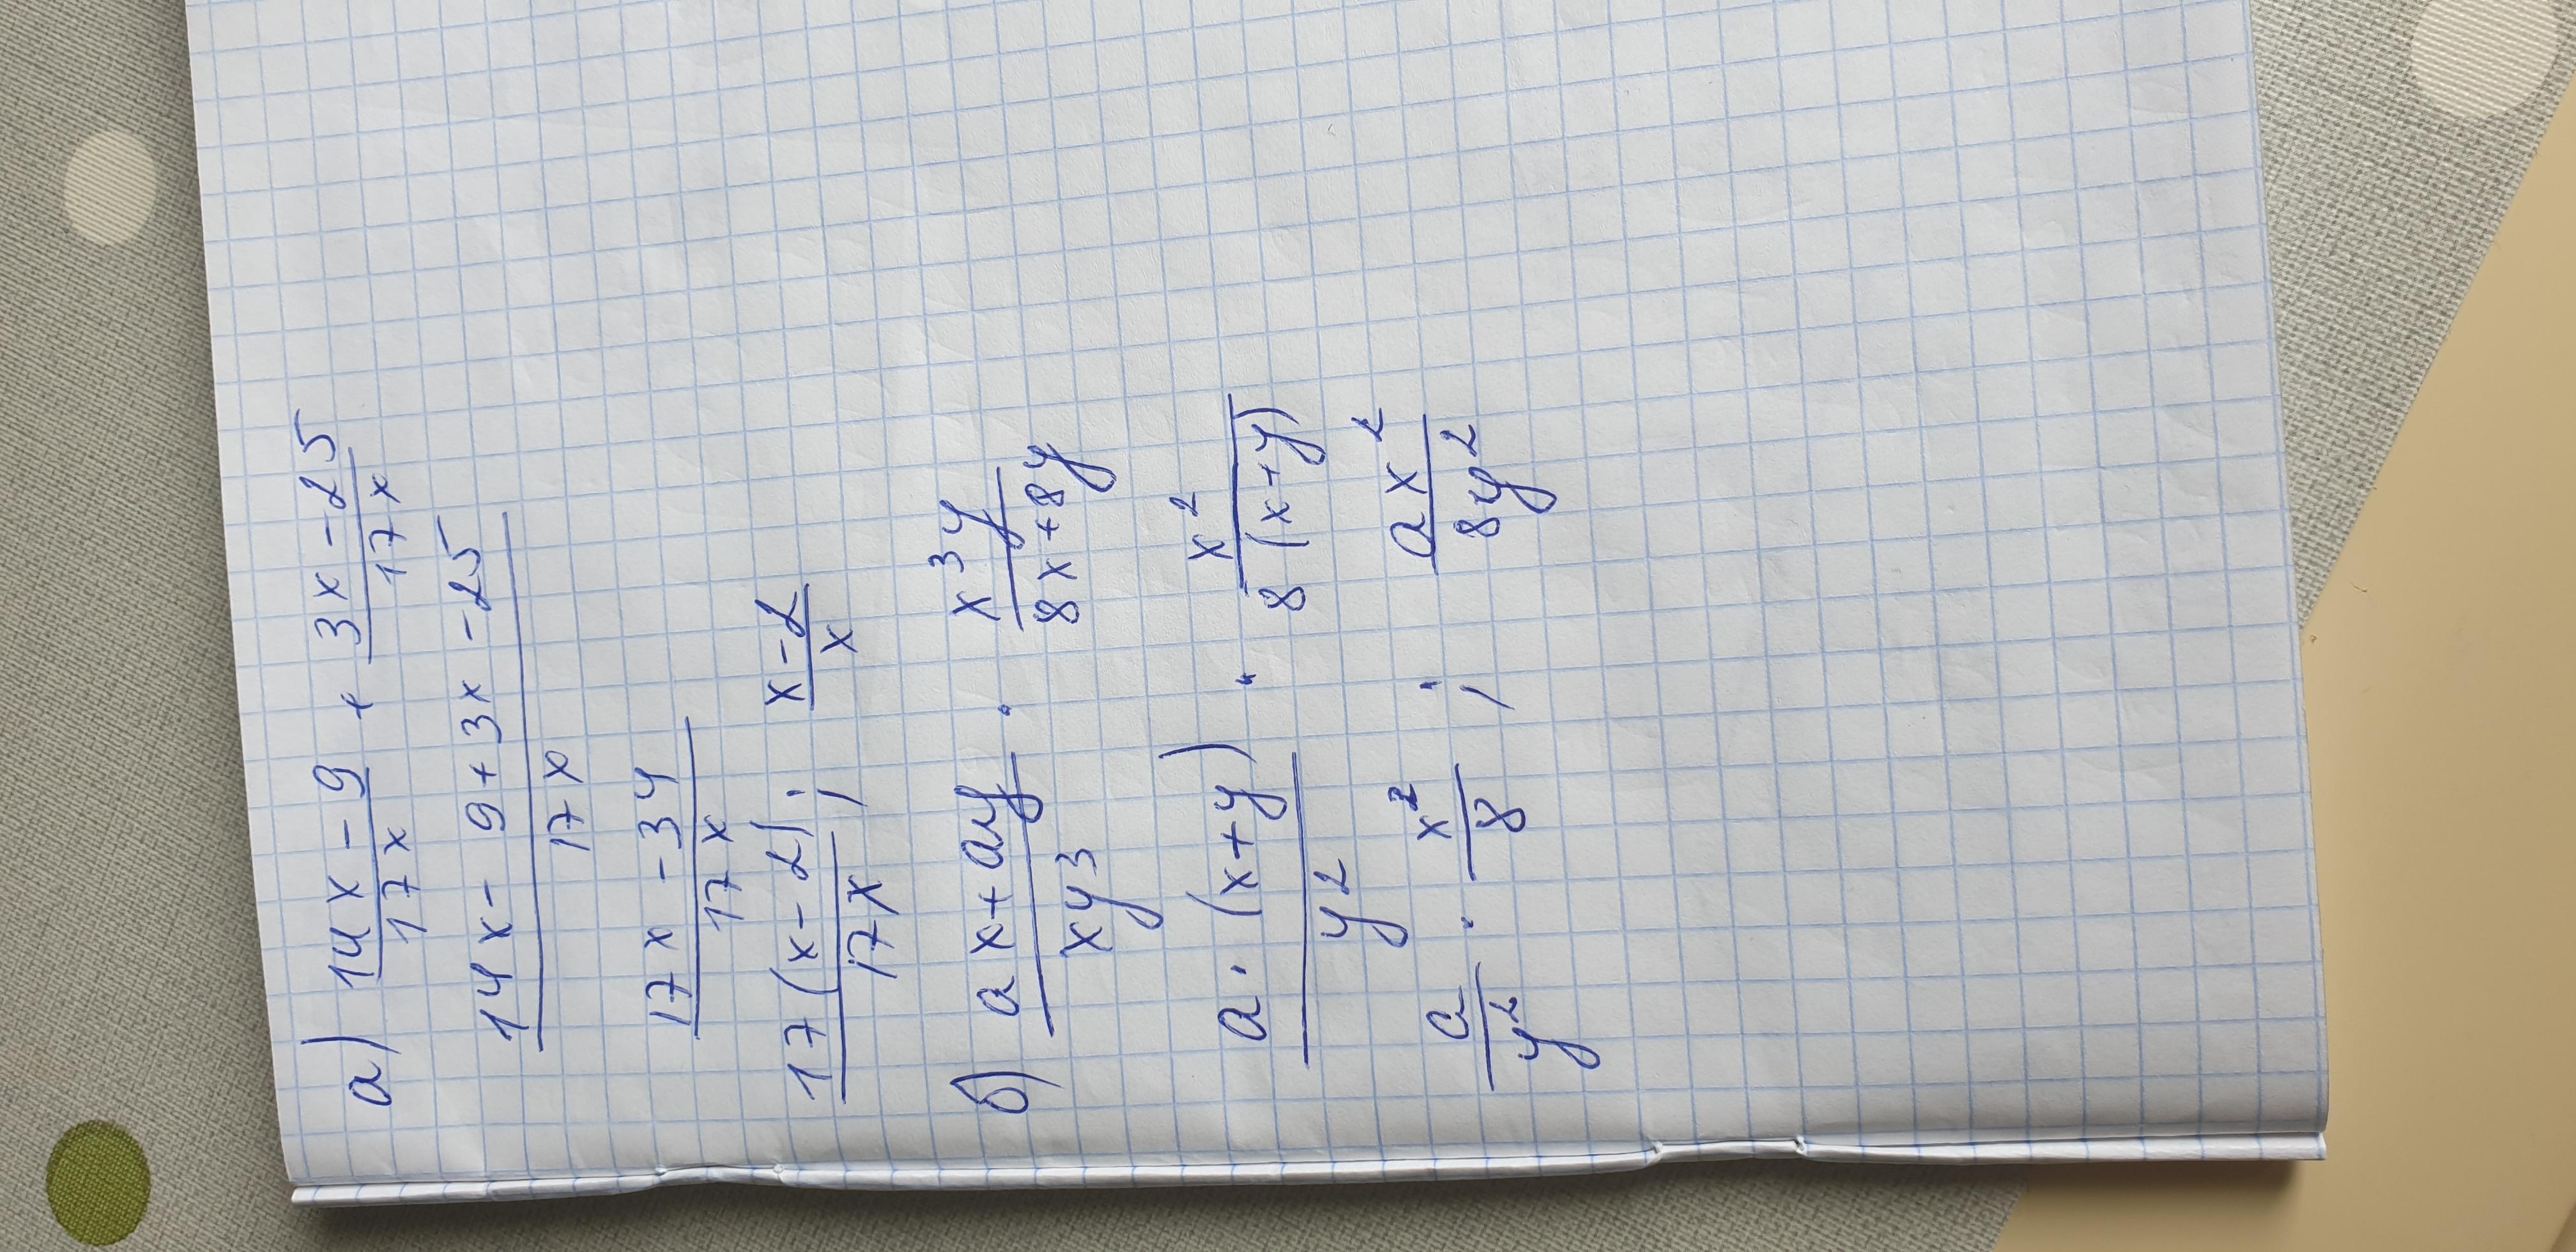 а) (14x - 9)/(17x) + (3x - 25)/(17x)
(14x - 9 + 3x - 25)/(17x)
(17x - 34)/(17x)
(17(x - 2))/(17x) ; (x - 2)/x
б) (ax + ay)/(xy³) · (x³y)/(8x + 8y)
(a · (x + y))/(y²) · (x²)/(8(x + y))
a/(y²) · (x²)/8 ; (ax²)/(8y²)